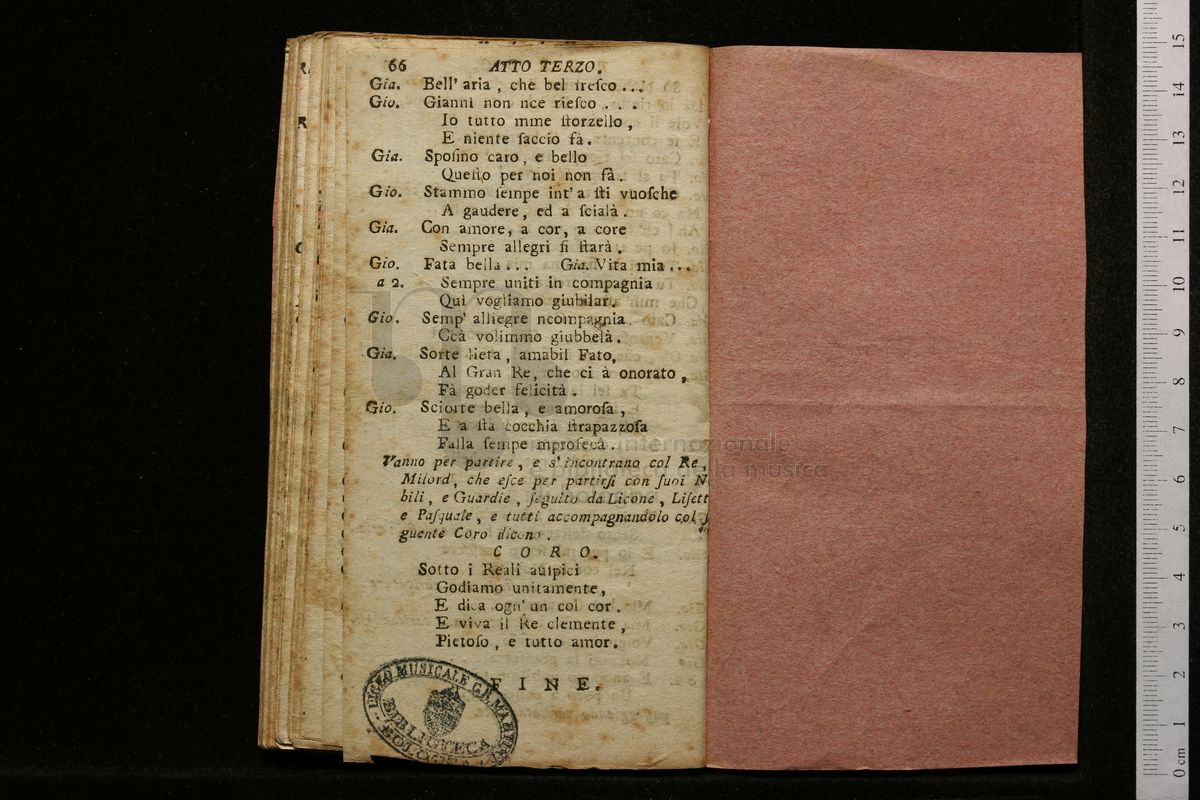 66 ATTO TERZO.
Gia. Bell' aria, che bel freſco...
Gio. Gianni non nce rieſco...
Io tutto mme ſtorzello,
E niente ſaccio fà.
Gia. Spoſino caro, e bello
Queſto per noi non fà.
Gio. Stammo ſempe int' a ſti vuoſche
A gaudere, ed a ſcialà.
Gia. Con amore, a cor, a core
Sempre allegri ſi ſtarà.
Gio. Fata bella... Gia. Vita mia...
a 2. Sempre uniti in compagnia
Quì vogliamo giubilar.
Gio. Semp' alliegre ncompagnia
Ccà volimmo giubbelà.
Gia. Sorte lieta, amabil Fato,
Al Gran Re, che ci à onorato,
Fà goder felicità.
Gio. Sciorte bella, e amoroſa,
E a ſta cocchia ſtrapazzoſa
Falla ſempe
Vanno per partire, e s' incontrano col Re,
Milord, che eſce per partirſi con ſuoi N
bili, e Guardie, ſeguito da Licone, Liſett
e Paſquale, e tutti accompagnandolo col ſ
guente Coro dicono.
C O R O.
Sotto i Reali auſpici
Godiamo unitamente,
E dica ogn' un col cor.
E viva il Re clemente,
Pietoſo, e tutto amor.
F I N E.
LICEO MUSICALE G.B. MARTINI
BIBLIOTECA
BOLOGNA
internazionale
e biblioteca della musica
15
14
13
12
11
10
9
8
7
6
5
4
3
2
1
0 cm